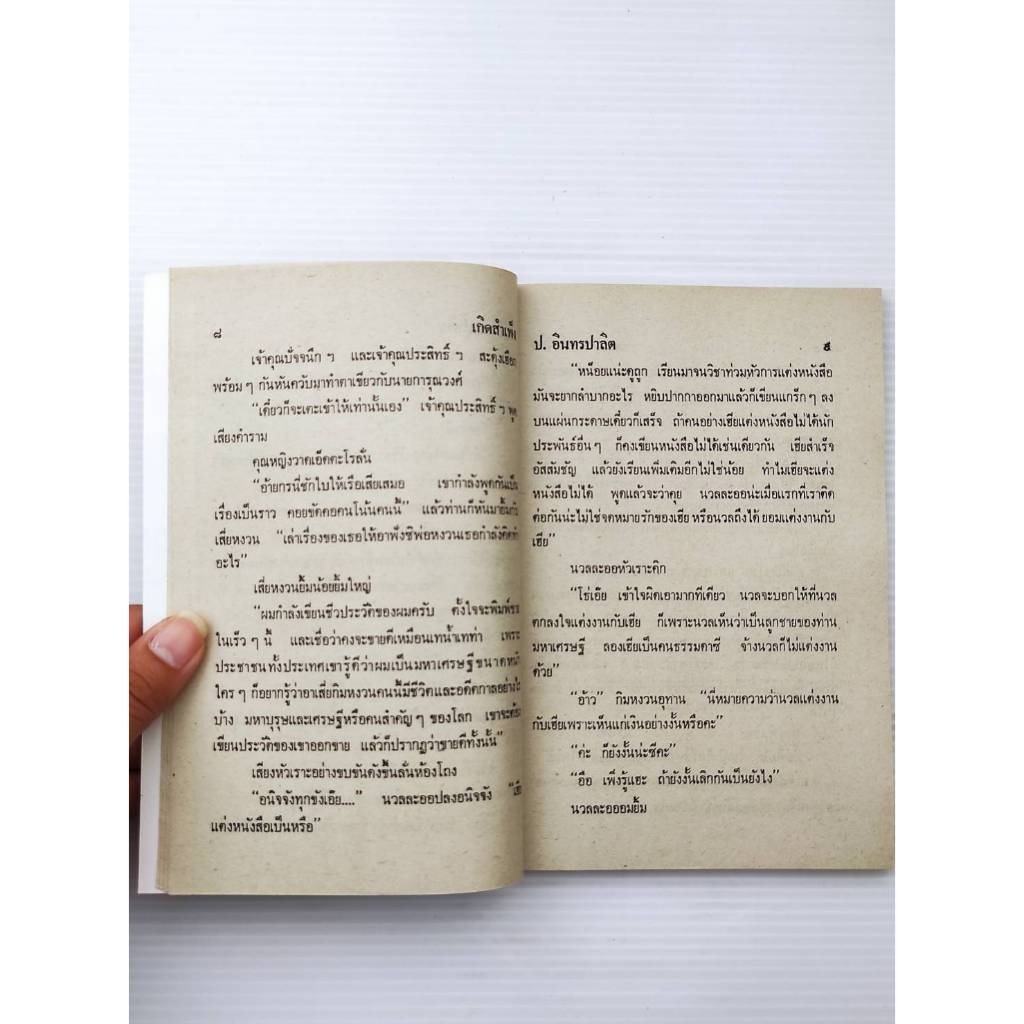 ๘ เกิดสำเพ็ง
เจ้าคุณปัจจนึก ๆ และเจ้าคุณประสิทธิ์ ๆ สะดุ้งเฮือก
พร้อม ๆ กันหันควับมาทำตาเขียวกับนายการุณวงศ์
“เดี๋ยวก็จะเตะเข้าให้เท่านั้นเอง” เจ้าคุณประสิทธิ์ ๆ พูด
เสียงคำราม
คุณหญิงวาดเอ็ดตะโรลั่น
“อ้ายกรนี่ชักใบให้เรือเสียเสมอ เขากำลังพูดกันเป็น
เรื่องเป็นราว คอยขัดคอคนโน้นคนนี้” แล้วท่านก็หันมายิ้มกับ
เสี่ยหงวน “เล่าเรื่องของเธอให้อาฟังซิพ่อหงวนเธอกำลังคิดทำ
อะไร”
เสี่ยหงวนยิ้มน้อยยิ้มใหญ่
“ผมกำลังเขียนชีวประวัติของผมครับ ตั้งใจจะพิมพ์ขาย
ในเร็ว ๆ นี้ และเชื่อว่าคงจะขายดีเหมือนเทน้ำเทท่า เพราะ
ประชาชนทั้งประเทศเขารู้ดีว่าผมเป็นมหาเศรษฐีขนาดหนัก
ใคร ๆ ก็อยากรู้ว่าอาเสี่ยกิมหงวนคนนี้มีชีวิตและอดีตกาลอย่างไร
บ้าง มหาบุรุษและเศรษฐีหรือคนสำคัญ ๆ ของโลก เขาจะต้อง
เขียนประวัติของเขาออกขาย แล้วก็ปรากฏว่าขายดีทั้งนั้น”
เสียงหัวเราะอย่างขบขันดังขึ้นลั่นห้องโถง
“อนิจจังทุกขังเอ๊ย....” นวลละออปลงอนิจจัง “เฮีย
แต่งหนังสือเป็นหรือ”
ป. อินทรปาลิต ๙
“หน็อยแน่ะดูถูก เรียนมาจนวิชาท่วมหัวการแต่งหนังสือ
มันจะยากลำบากอะไร หยิบปากกาออกมาแล้วก็เขียนแกร็ก ๆ ลง
บนแผ่นกระดาษเดี๋ยวก็เสร็จ ถ้าคนอย่างเฮียแต่งหนังสือไม่ได้นัก
ประพันธ์อื่น ๆ ก็คงเขียนหนังสือไม่ได้เช่นเดียวกัน เฮียสำเร็จ
อัสสัมชัญ แล้วยังเรียนเพิ่มเติมอีกไม่ใช่น้อย ทำไมเฮียจะแต่ง
หนังสือไม่ได้ พูดแล้วจะว่าคุย นวลละออน่ะเมื่อแรกที่เราติด
ต่อกันน่ะไม่ใช่จดหมายรักของเฮีย หรือนวลถึงได้ ยอมแต่งงานกับ
เฮีย”
นวลละออหัวเราะคิก
“โธ่เอ๊ย เข้าใจผิดเอามากทีเดียว นวลจะบอกให้ที่นวล
ตกลงใจแต่งงานกับเฮีย ก็เพราะนวลเห็นว่าเป็นลูกชายของท่าน
มหาเศรษฐี ลองเฮียเป็นคนธรรมดาซี จ้างนวลก็ไม่แต่งงาน
ด้วย”
“อ้าว” กิมหงวนอุทาน “นี่หมายความว่านวลแต่งงาน
กับเฮียเพราะเห็นแก่เงินอย่างงั้นหรือคะ”
“ค่ะ ก็ยังงั้นน่ะซีคะ”
“ฮือ เพิ่งรู้แฮะ ถ้ายังงั้นเลิกกันเป็นยังไง”
นวลละอออมยิ้ม